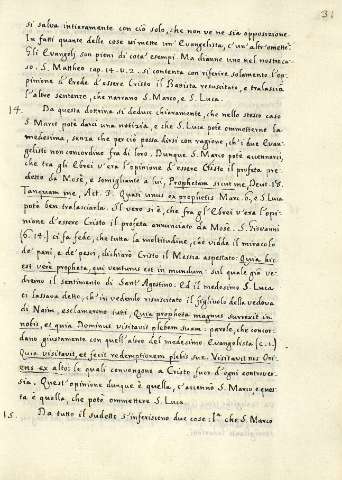 31
si salva intieramente con ciò solo, che non ve ne sia opposizione.
In fatti quante delle cose vi mette un' Evangelista, e un' altr' omette?
Gli Evangelj son pieni di cotal' esempi. Ma diamne uno nel nostro ca-
so. S. Mattheo cap. 14. v. 2. si contenta con riferire solamente l'op-
pinione d'Erode d'essere Cristo il Batista resuscitato, e tralascia
l'altre sentenze, che narrano S. Marco, e S. Luca.
14. Da questa dottrina si deduce chiaramente, che nello stesso caso
S. Marco potè darci una notizia, e che S. Luca potè ommetterne la
medesima, senza che perciò possa dirsi con ragione, ch'i due Evan-
gelisti non concordine fra di loro. Dunque S. Marco potè accennarci
che tra gli Ebrei v'era l'opinione d'essere Cristo il profeta pre-
detto da Mosè, e somigliante a lui, Prophetam sicut me, Deut. 18.
Tanquam me, Act. 3. Quasi unus ex prophetis Marc. 6, e S. Luca
potè ben tralasciarla. Il vero si è, che fra gl'Ebrei v'era l'opi-
nione d'essere Cristo il profeta annunciato da Mosè. S. Giovanni
(6. 14.) ci fa fede, che tutta la moltitudine, che vidde il miracolo
de' pani, e de' pesci, dichiarò Cristo il Messia aspettato: Quia hic
est verè propheta, qui venturus est in mundum: sul quale già ve-
dremo il sentimento di Sant' Agostino. Ed il medesimo S. Luca
ci lasciava detto, ch' in vedendo risuscitato il figliuolo della vedova
di Naim, esclamarono tutti, Quia propheta magnus surrexit in
nobis, et quia Dominus visitavit plebem suam: parole, che concor-
dano giustamente con quell'altre del medesimo Evangelista (c. 1.)
Quia visitavit, et fecit redemptionem plebis suæ. Visitavit nos Ori-
ens ex alto: le quali convengono a Cristo fuor d'ogni controver-
sia. Quest' opinione dunque è quella, ch'accennò S. Marco e ques-
ta è quella, che potè ommettere S. Luca.
15. Da tutto il sudetto s'inferiscono due cose: 1.ª che S. Marco